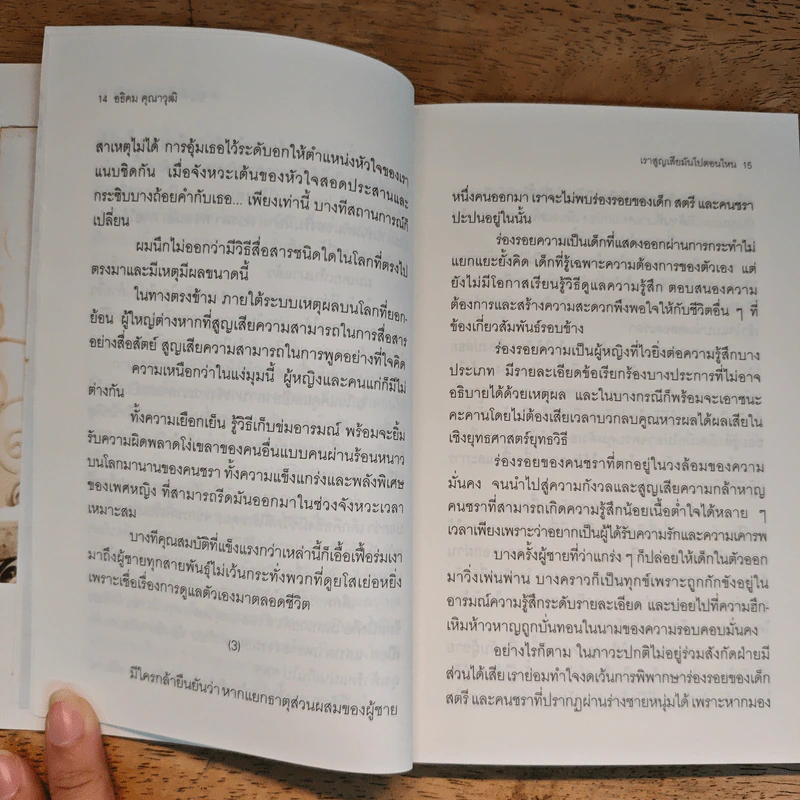 14 อธิคม คุณาวุฒิ
สาเหตุไม่ได้ การอุ้มเธอไว้ระดับอกให้ตำแหน่งหัวใจของเรา
แนบชิดกัน เมื่อจังหวะเต้นของหัวใจสอดประสานและ
กระซิบบางถ้อยคำกับเธอ... เพียงเท่านี้ บางทีสถานการณ์ก็
เปลี่ยน
ผมนึกไม่ออกว่ามีวิธีสื่อสารชนิดใดในโลกที่ตรงไป
ตรงมาและมีเหตุมีผลขนาดนี้
ในทางตรงข้าม ภายใต้ระบบเหตุผลบนโลกที่ยอก-
ย้อน ผู้ใหญ่ต่างหากที่สูญเสียความสามารถในการสื่อสาร
อย่างสื่อสัตย์ สูญเสียความสามารถในการพูดอย่างที่ใจคิด
ความเหนือกว่าในแง่มุมนี้ ผู้หญิงและคนแก่ก็มีไม่
ต่างกัน
ทั้งความเยือกเย็น รู้วิธีเก็บข่มอารมณ์ พร้อมจะยิ้ม
รับความผิดพลาดโง่เขลาของคนอื่นแบบคนผ่านร้อนหนาว
บนโลกมานานของคนชรา ทั้งความแข็งแกร่งและพลังพิเศษ
ของเพศหญิง ที่สามารถรีดมันออกมาในช่วงจังหวะเวลา
เหมาะสม
บางทีคุณสมบัติที่แข็งแรงกว่าเหล่านี้ก็เอื้อเฟื้อร่มเงา
มาถึงผู้ชายทุกสายพันธุ์ไม่เว้นกระทั่งพวกที่ดูยโสเย่อหยิ่ง
เพราะเชื่อเรื่องการดูแลตัวเองมาตลอดชีวิต
(3)
มีใครกล้ายืนยันว่า หากแยกธาตุส่วนผสมของผู้ชาย
เราสูญเสียมันไปตอนไหน 15
หนึ่งคนออกมา เราจะไม่พบร่องรอยของเด็ก สตรี และคนชรา
ปะปนอยู่ในนั้น
ร่องรอยความเป็นเด็กที่แสดงออกผ่านการกระทำไม่
แยกแยะยั้งคิด เด็กที่รู้เฉพาะความต้องการของตัวเอง แต่
ยังไม่มีโอกาสเรียนรู้วิธีดูแลความรู้สึก ตอบสนองความ
ต้องการและสร้างความสะดวกพึงพอใจให้กับชีวิตอื่น ๆ ที่
ข้องเกี่ยวสัมพันธ์รอบข้าง
ร่องรอยความเป็นผู้หญิงที่ไวยิ่งต่อความรู้สึกบาง
ประเภท มีรายละเอียดข้อเรียกร้องบางประการที่ไม่อาจ
อธิบายได้ด้วยเหตุผล และในบางกรณีก็พร้อมจะเอาชนะ
คะคานโดยไม่ต้องเสียเวลาบวกลบคูณหารผลได้ผลเสียใน
เชิงยุทธศาสตร์ยุทธวิธี
ร่องรอยของคนชราที่ตกอยู่ในวงล้อมของความ
มั่นคง จนนำไปสู่ความกังวลและสูญเสียความกล้าหาญ
คนชราที่สามารถเกิดความรู้สึกน้อยเนื้อต่ำใจได้หลาย ๆ
เวลาเพียงเพราะว่าอยากเป็นผู้ได้รับความรักและความเคารพ
บางครั้งผู้ชายที่ว่าแกร่ง ๆ ก็ปล่อยให้เด็กในตัวออก
มาวิ่งเพ่นพ่าน บางคราวก็เป็นทุกข์เพราะถูกกักขังอยู่ใน
อารมณ์ความรู้สึกระดับรายละเอียด และบ่อยไปที่ความฮึก-
เหิมห้าวหาญถูกบั่นทอนในนามของความรอบคอบมั่นคง
อย่างไรก็ตาม ในภาวะปกติไม่อยู่ร่วมสังกัดฝ่ายมี
ส่วนได้เสีย เราย่อมทำใจงดเว้นการพิพากษาร่องรอยของเด็ก
สตรี และคนชราที่ปรากฏผ่านร่างชายหนุ่มได้ เพราะหากมอง